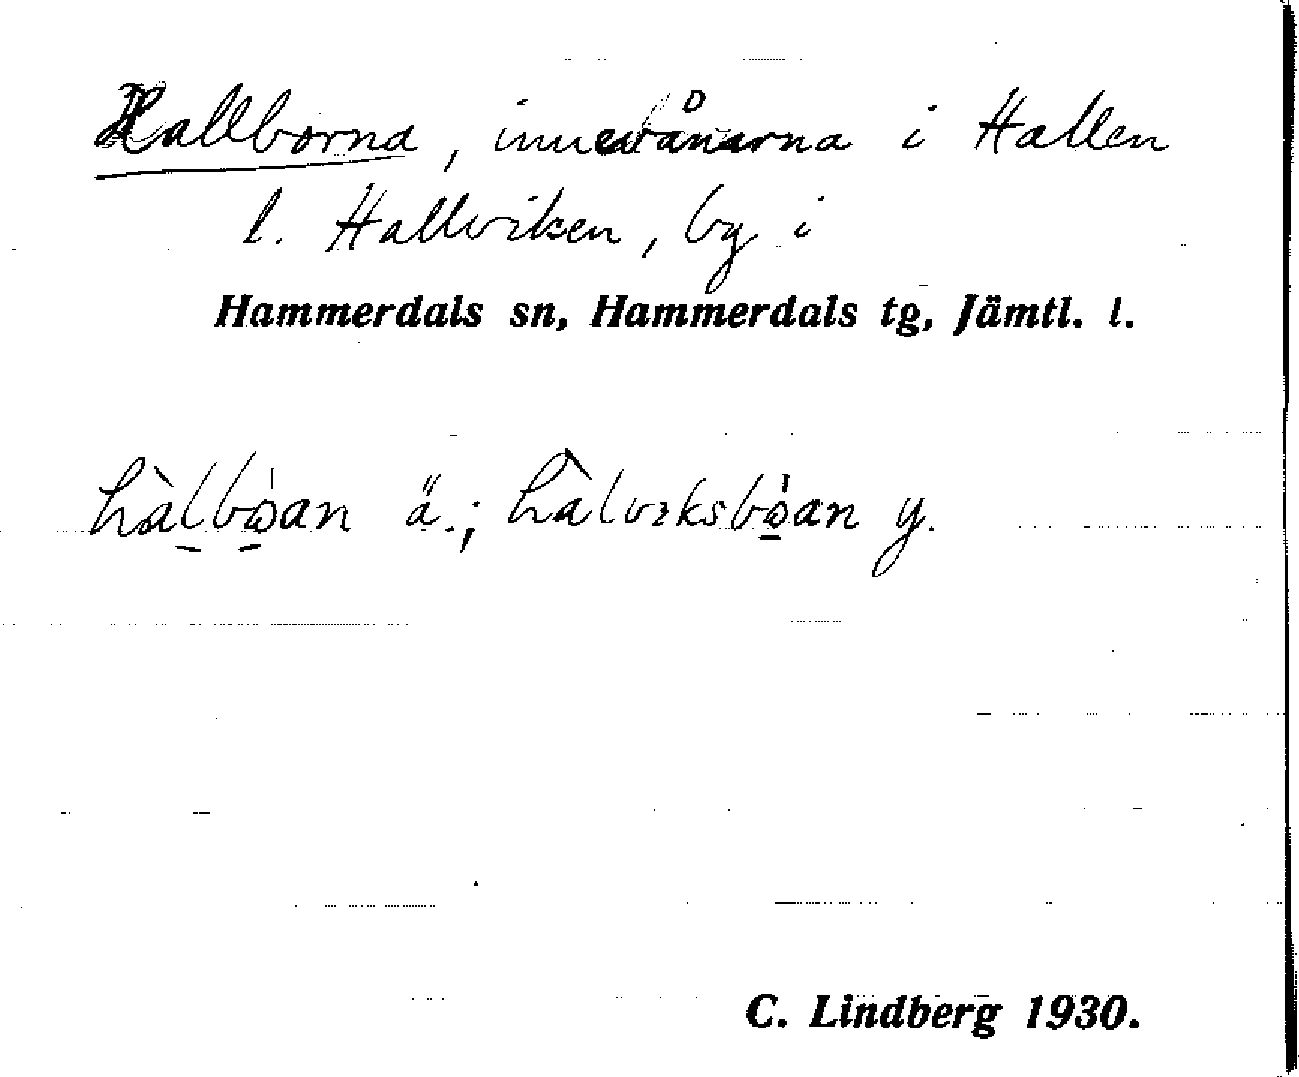 Hallborna, innevånarna i Hallen
l. Hallviken, by i
Hammerdals sn, Hammerdals tg, Jämtl. l.
hàlbòan ä.; hàlviksbòan y.
C. Lindberg 1930.